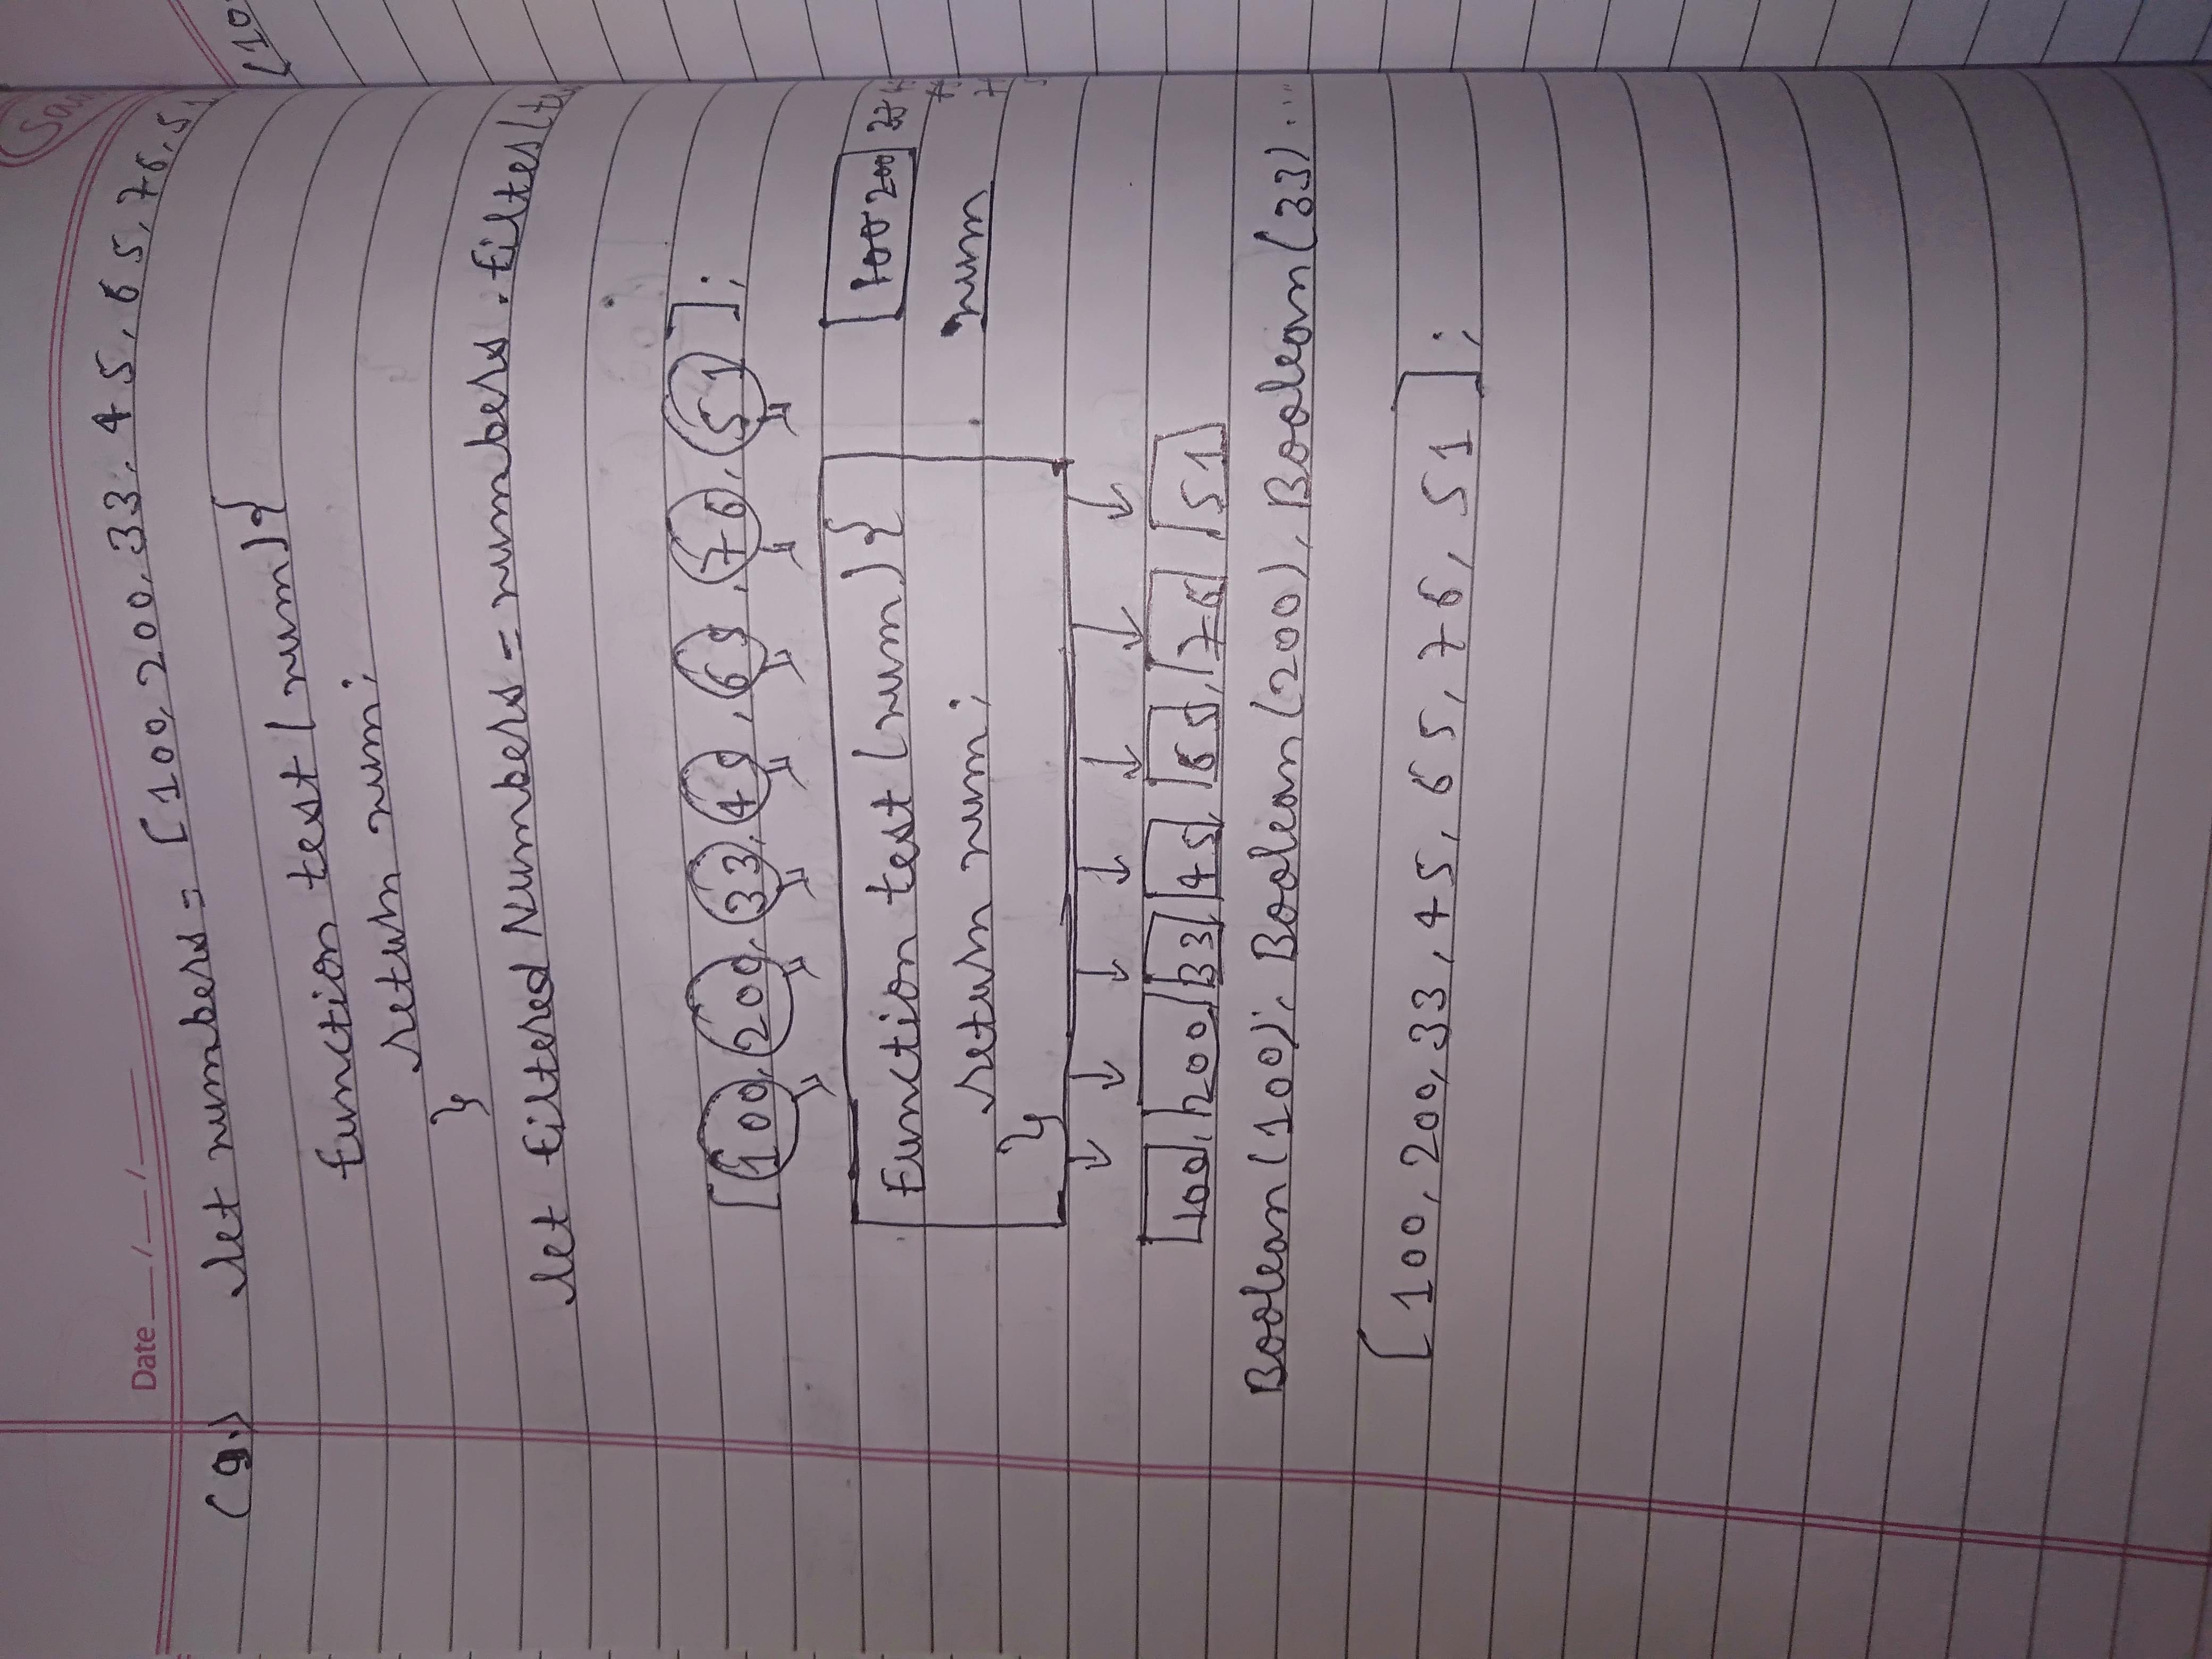 Date __/__/____
(9.) let numbers = [100, 200, 33, 45, 65, 76, 51
function test(num){
return num;
}
let filteredNumbers = numbers.filter(
[100, 200, 33, 45, 65, 76, 51];
function test(num){
return num;
}
100 200 33
num
100, 200, 33, 45, 65, 76 51
Boolean(100), Boolean(200), Boolean(33)....
[100, 200, 33, 45, 65, 76, 51];
(10